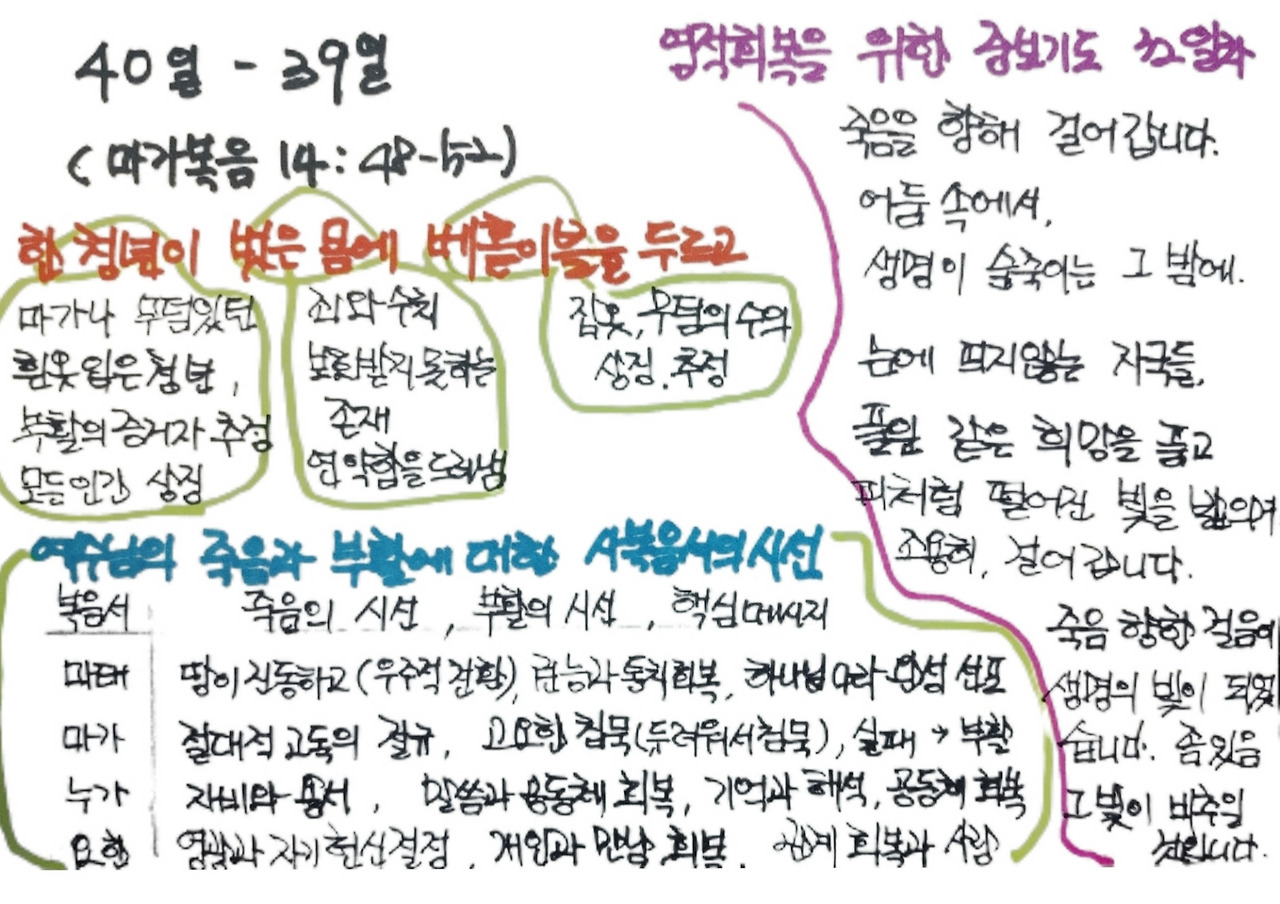 40일 - 39일
(마가복음 14:48-52)
한 청년이 벗은 몸에 베홑이불을 두르고
마가나 무덤있던
흰옷 입은 청년,
부활의 증거자 추정
모든인간 상징
죄와 수치
보호받지 못하는
존재
연약함을 드러냄
잠옷, 무덤의 수의
상징. 추정
예수님의 죽음과 부활에 대한 사복음서의 시선
복음서 죽음의 시선, 부활의 시선, 핵심메시지
마태 땅이 진동하고(우주적 전환), 권능과 통치회복, 하나님 나라 완성 선포
마가 절대적 고독의 절규, 고요한 침묵(두려워서침묵), 실패 → 부활
누가 자비와 용서, 말씀과 공동체 회복, 기억과 해석, 공동체 회복
요한 영광과 자기 헌신결정, 개인과 만남 회복. 관계 회복과 사랑
영적회복을 위한 중보기도 32일차
죽음을 향해 걸어갑니다.
어둠 속에서,
생명이 숨죽이는 그 밤에.
눈에 띄지않는 자국들,
풀잎 같은 희망을 품고
피처럼 떨어진 빛을 밟으며
조용히, 걸어갑니다.
죽음 향한 걸음에
생명의 빛이 되었
습니다. 좀있음
그빛이 비추일
것입니다.